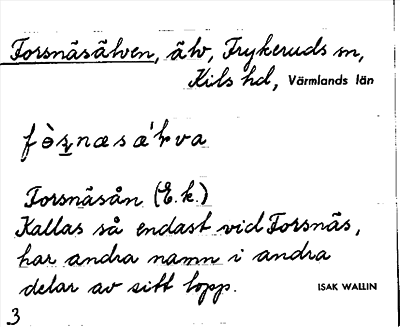 Forsnäsälven, älv, Frykeruds sn,
Kils hd, Värmlands län
fòs̱næsǽlva
Forsnäsån (E.k.)
Kallas så endast vid Forsnäs,
har andra namn i andra
delar av sitt lopp.
ISAK WALLIN
3